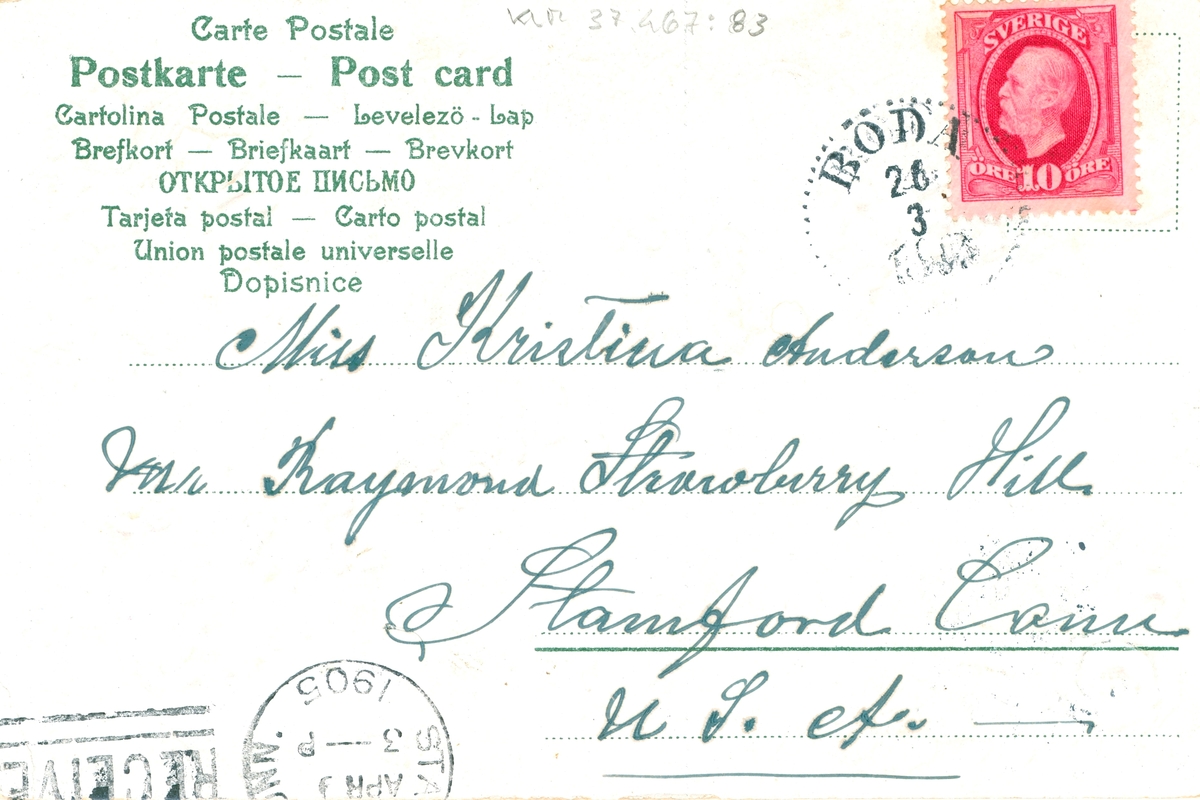 KLM 37.467:83
Carte Postale
Postkarte — Post card
Cartolina Postale — Levelező-Lap
Brefkort — Briefkaart — Brevkort
ОТКРЫТОЕ ПИСЬМО
Tarjeta postal — Carto postal
Union postale universelle
Dopisnice
SVERIGE
ÖRE 10 ÖRE
BODA
26
3
Miss Kristina Anderson
Raymond Strowberry Hill
Stamford Conn
U. S. A.
1905
3 — P
APR 3
STA
RECEIVE